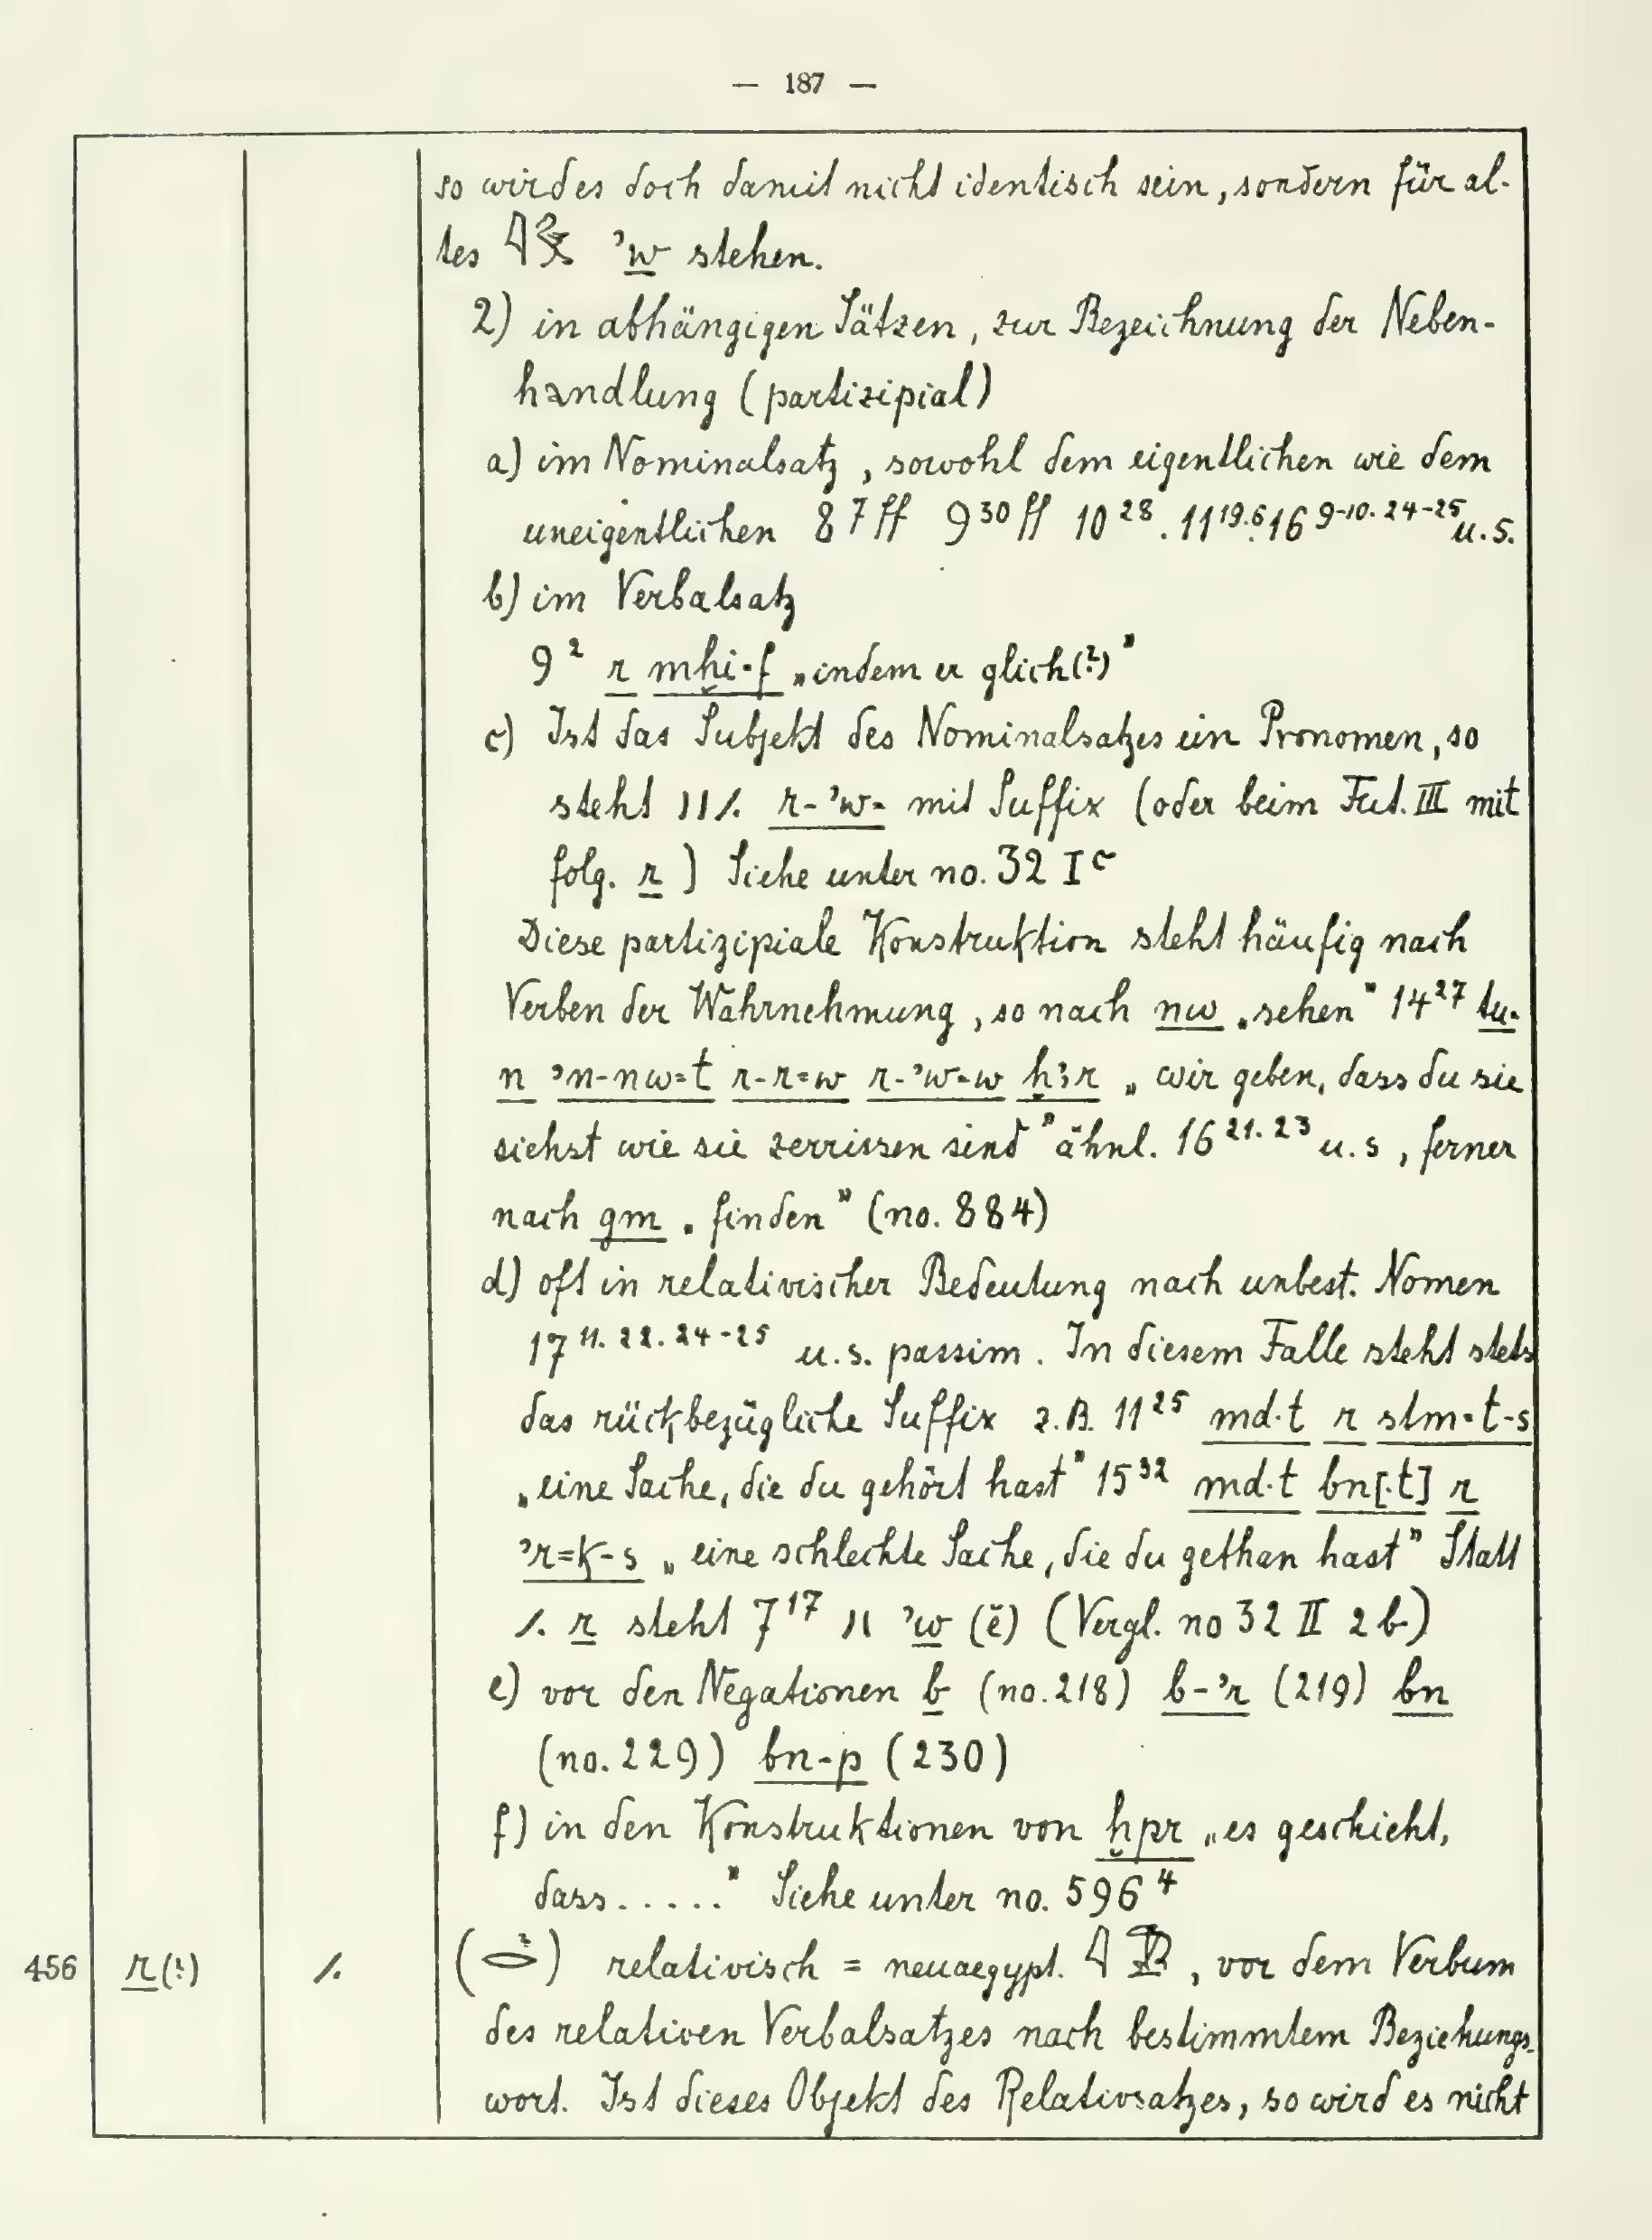 — 187 —
so wird es doch damit nicht identisch sein, sondern für al-
tes 𓇋𓅱 ʾw stehen.
2) in abhängigen Sätzen, zur Bezeichnung der Neben-
handlung (partizipial)
a) im Nominalsatz, sowohl dem eigentlichen wie dem
uneigentlichen 8 7ff 9 30ff 10 28. 11 19.6. 16 9-10. 24-25 u. s.
b) im Verbalsatz
9 2 r mḫi·f „indem er glich(?)"
c) Ist das Subjekt des Nominalsatzes ein Pronomen, so
steht r-ʾw= mit Suffix (oder beim Fut. III mit
folg. r) Siehe unter no. 32 I c
Diese partizipiale Konstruktion steht häufig nach
Verben der Wahrnehmung, so nach nw „sehen" 14 27 tu-
n ʾn-nw=t r-r=w r-ʾw=w ḫꜣr „wir geben, dass du sie
siehst wie sie zerrissen sind" ähnl. 16 21. 23 u. s, ferner
nach gm „finden" (no. 884)
d) oft in relativischer Bedeutung nach unbest. Nomen
17 11. 22. 24-25 u. s. passim. In diesem Falle steht stets
das rückbezügliche Suffix z. B. 11 25 md·t r stm=t-s
„eine Sache, die du gehört hast" 15 32 md·t bn[·t] r
ʾr=k-s „eine schlechte Sache, die du gethan hast" Statt
/. r steht 7 17 ʾw (ĕ) (Vergl. no 32 II 2 b)
e) vor den Negationen b (no. 218) b-ʾr (219) bn
(no. 229) bn-p (230)
f) in den Konstruktionen von ḫpr „es geschieht,
dass....." Siehe unter no. 596 4
456 r(?) /. (𓂋?) relativisch = neuaegypt. 𓇋, vor dem Verbum
des relativen Verbalsatzes nach bestimmtem Beziehungs-
wort. Ist dieses Objekt des Relativsatzes, so wird es nicht